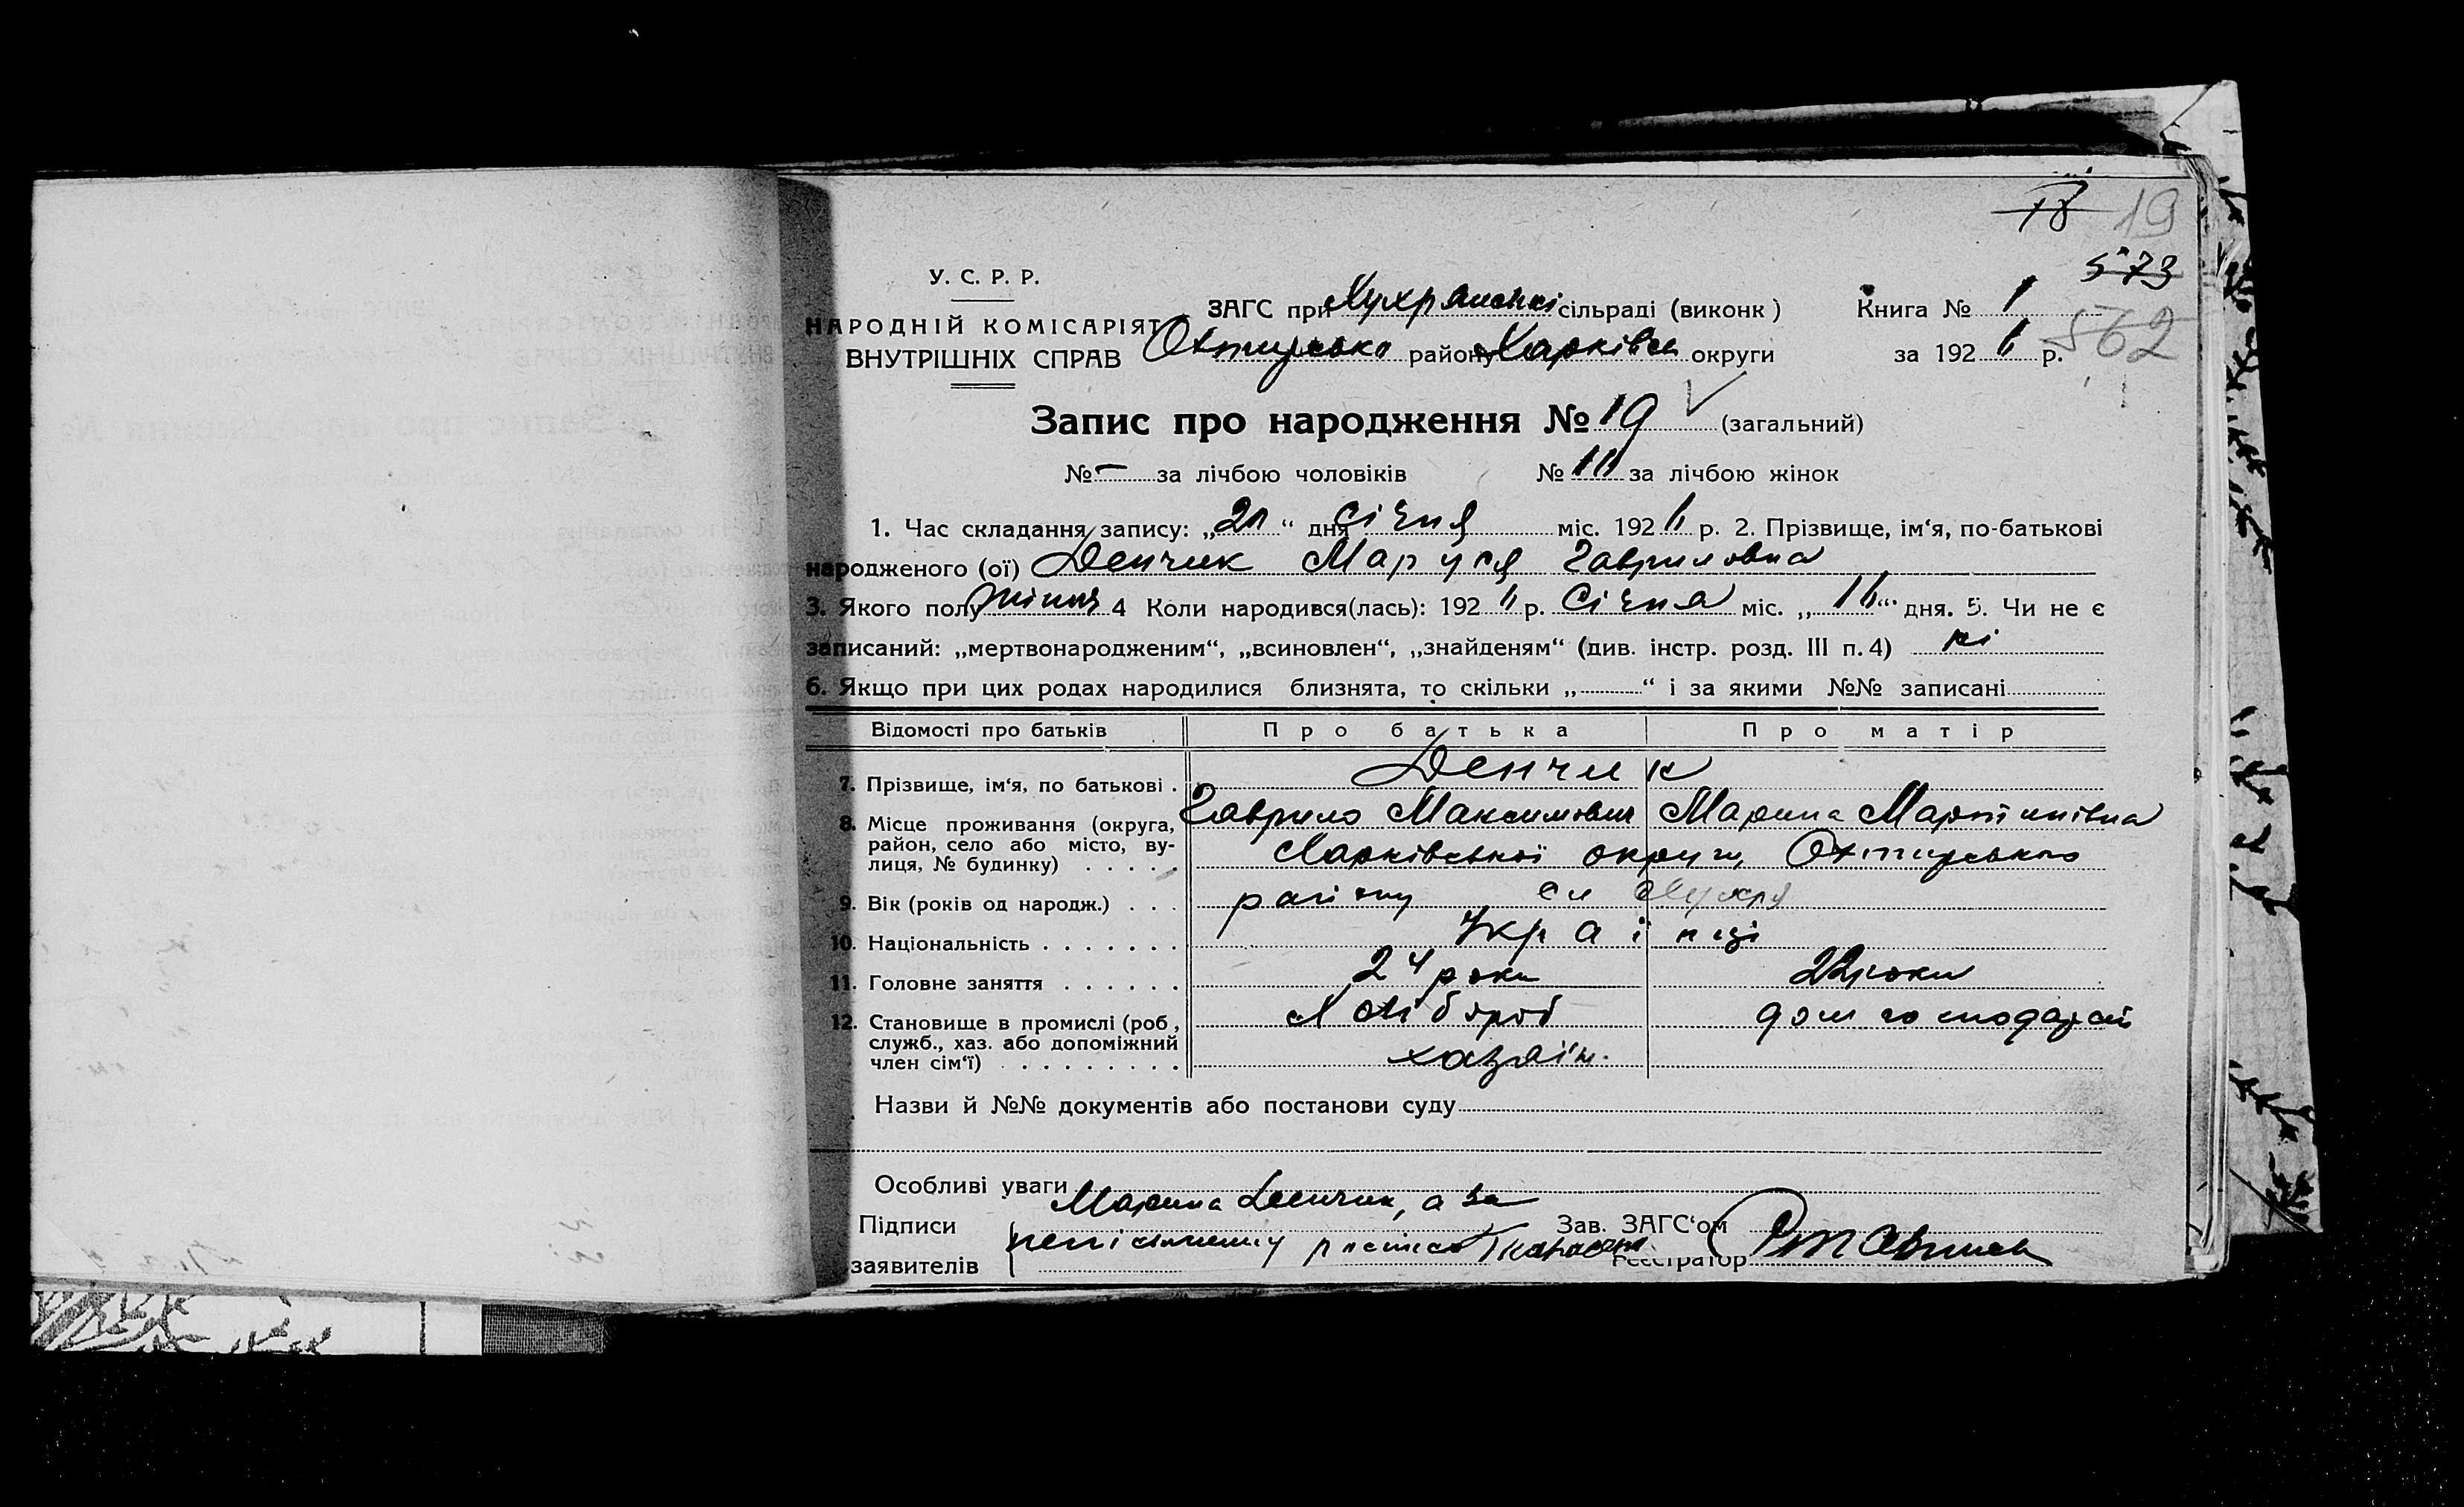 18 19
573
562
У. С. Р. Р.
НАРОДНІЙ КОМІСАРІЯТ
ВНУТРІШНІХ СПРАВ
ЗАГС при Хухрянські сільраді (виконк) Книга № 1
Охтирсько району Харківськ округи за 192 р.
Запис про народження № 19 (загальний)
№ – за лічбою чоловіків № за лічбою жінок
1. Час складання запису: „ “ дня Січня міс. 192 р. 2. Прізвище, ім‘я, по-батькові
народженого (ої) Денчик Маруся Гавриловна
3. Якого полу жіноч 4 Коли народився(лась): 192 р. Січня міс. „ “ дня. 5. Чи не є
записаний: „мертвонародженим“, „всиновлен“, „знайденям“ (див. інстр. розд. III п. 4) ні
6. Якщо при цих родах народилися близнята, то скільки „ “ і за якими №№ записані
Відомості про батьків Про батька Про матір
7. Прізвище, ім‘я, по батькові . Денчик
Гаврило Максимович Марина Мартинівна
8. Місце проживання (округа, район, село або місто, вулиця, № будинку) . . . . . Харківської округи, Охтирського
9. Вік (років од народж.) . . . району с. Хухря
10. Національність . . . . . . . Українці
11. Головне заняття . . . . . . 24 роки 22 роки
12. Становище в промислі (роб, служб., хаз. або допоміжний член сім‘ї) . . . . . . . . . Хлібороб дом господарст
хазяїн.
Назви й №№ документів або постанови суду
Особливі уваги
Марина Денчик, а за
Підписи заявителів неписьменну росписався
Зав. ЗАГС‘ом
Реєстратор